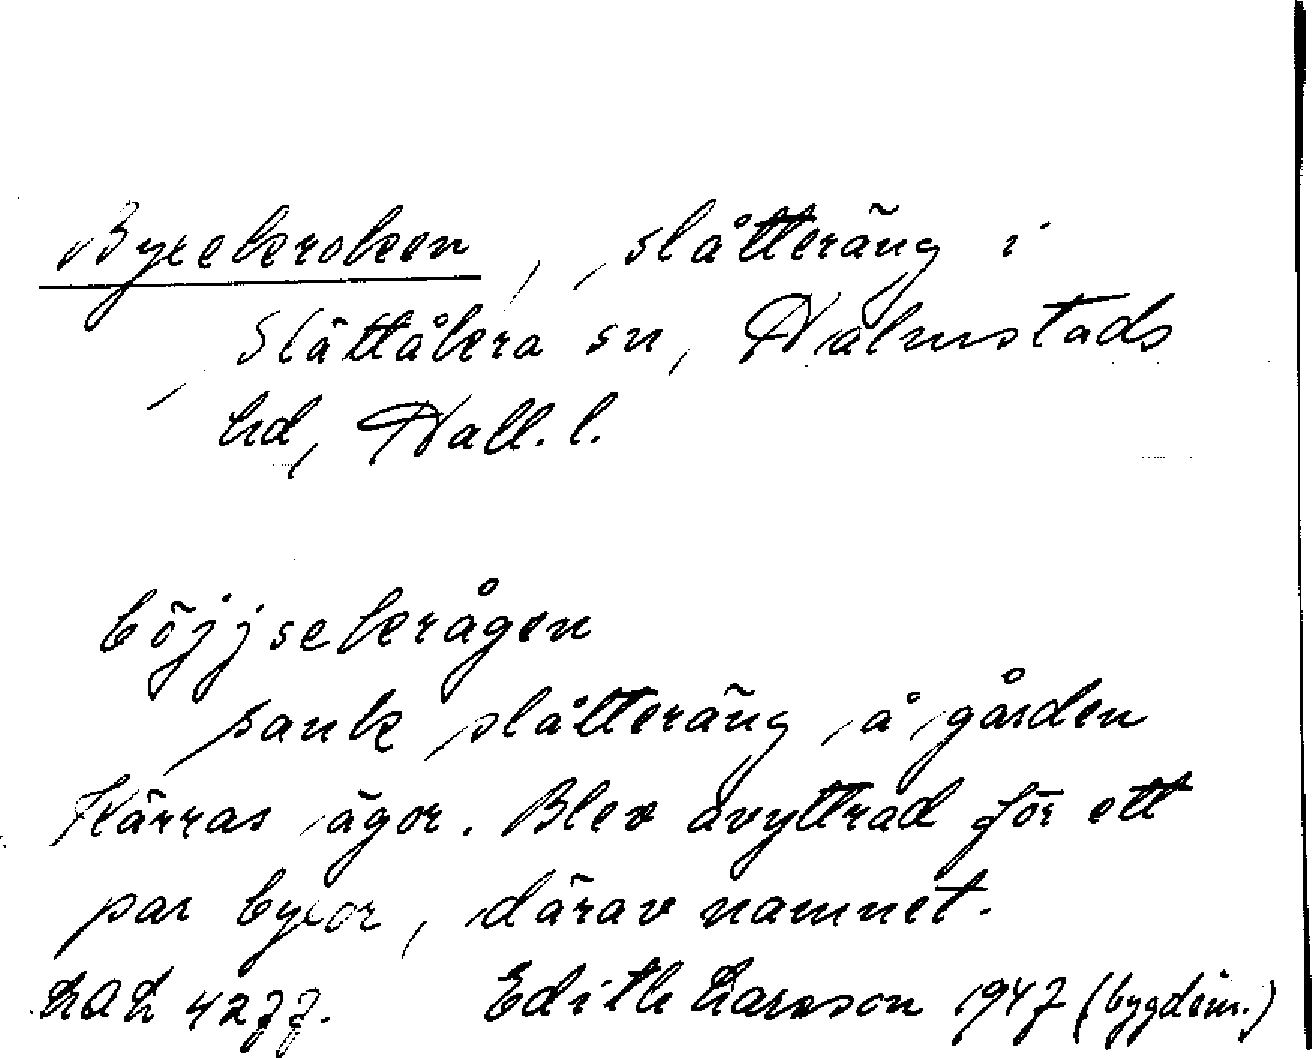 Byxekroken, slåtteräng i
Slättåkra sn, Halmstads
hd, Hall. l.
böjjsekrågen
sank slåtteräng å gården
Kärras ägor. Blev avyttrad för ett
par byxor, därav namnet.
LAL 4277. Edith Larsson 1947 (bygdem.)